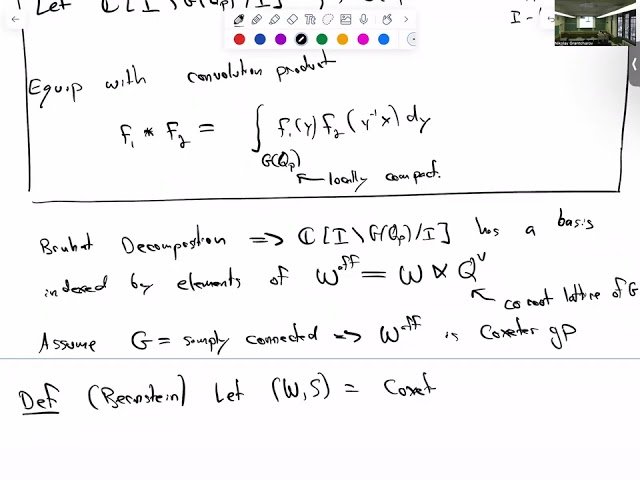 Let ℂ[I\G(ℚp)/I]
I -
Equip with convolution product
f₁ * f₂ = ∫ f₁(y) f₂(y⁻¹x) dy
G(ℚp)
locally compact.
Bruhat Decompostion ⟹ ℂ[I\G(ℚp)/I] has a basis
indexed by elements of W^aff = W ⋉ Q^∨
coroot lattice of G
Assume G = simply connected ⟹ W^aff is Coxeter gp
Def (Bernstein) Let (W,S) = Coxet